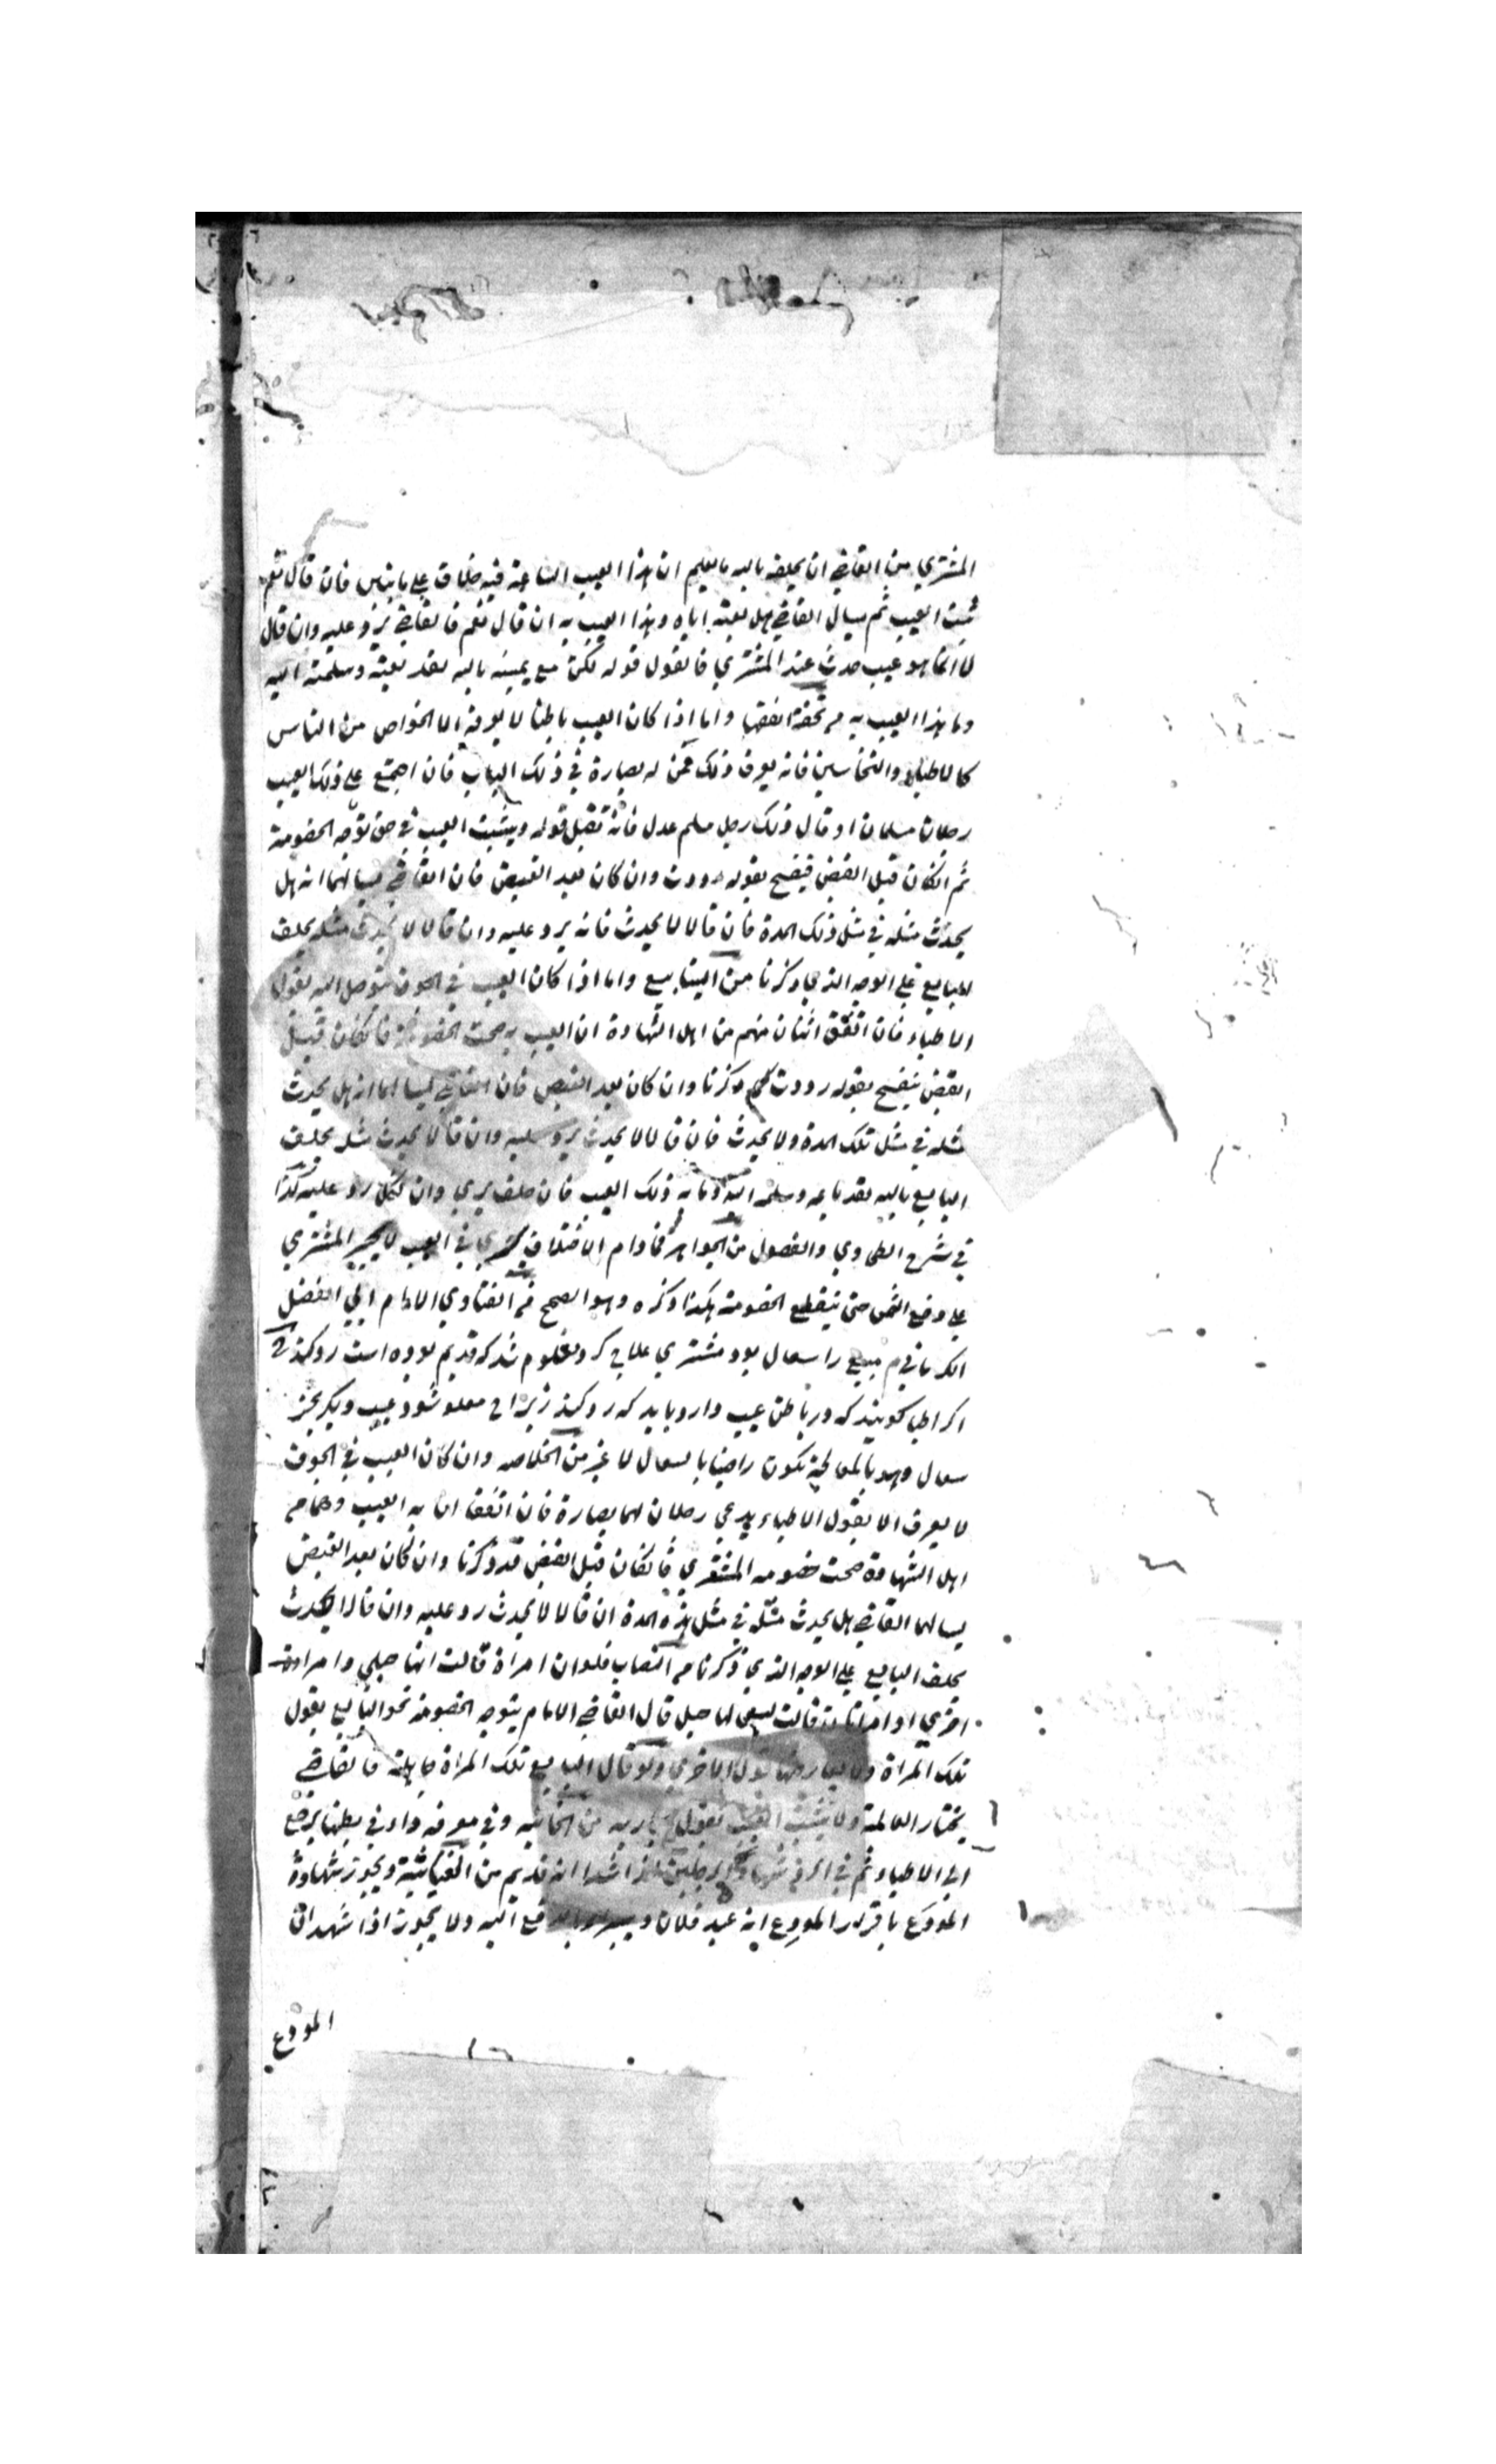 المشتري من القاضي ان يحلفه بالله ما يعلم ان هذا العيب الساعة فيه خلاف على ما بيناس فان قال نعم
ثبت العيب ثم يسال القاضي هل بعته اياه وهذا العيب به ان قال نعم فالقاضي يرد عليه وان قال
لا انما هو عيب حدث عند المشتري فالقول قوله لكن مع يمينه بالله لقد بعته وسلمته اليه
وما هذا العيب به من تحفة الفقها واما اذا كان العيب باطنا لا يعرفه الا الخواص من الناس
كالاطباء والنخاسين فانه يعرف ذلك ممن له بصارة في ذلك الباب فان اجتمع على ذلك العيب
رجلان مسلمان او قال ذلك رجل مسلم عدل فانه تقبل قوله ويثبت العيب في حق توجه الخصومة
ثم ان كان قبل القبض فيفسخ بقوله رددت وان كان بعد القبض فان القاضي يسالهما انه هل
يحدث مثله في مثل ذلك المدة فان قالا لا يحدث فانه يرد عليه وان قالا لا يحدث مثله يحلف
البايع على الوجه الذي ذكرنا من الينابيع واما اذا كان العيب في الجوف يتوصل اليه بقول
الاطباء فان اتفق اثنان منهم من اهل الشهادة ان العيب به صحت الخصومة فان كان قبل
القبض يفسخ بقوله رددت كما ذكرنا وان كان بعد القبض فان القاضي يسالهما انه هل يحدث
مثله في مثل تلك المدة ولا يحدث فان قالا لا يحدث يرد عليه وان قالا يحدث مثله يحلف
البايع بالله لقد باعه وسلمه اليه وما به ذلك العيب فان حلف بري وان نكل رد عليه كذا
في شرح الطحاوي والفصول من الجواهر فما دام الاختلاف يجري في العيب لا يجبر المشتري
على دفع الثمن حتى ينقطع الخصومة هكذا ذكره وهو الصحيح من الفتاوي الامام ابي الفضل
الكرماني م مبيع را سعال بود مشتري علاج كرد معلوم شد كه قديم بوده است رد كند لا
اكر اطبا كويند كه در باطن عيب دارد بايد كه رد كند زيرا ح معلو شود عيب ديكر بجز
سعال وهو بالمعالجة يكون راضيا بالسعال لا غير من الخلاصه وان كان العيب في الجوف
لا يعرف الا بقول الاطباء يدعي رجلان لهما بصارة فان اتفقا ان به العيب وهما م
اهل الشهادة صحت خصومه المشتري فان كان قبل القبض قد ذكرنا وان كان بعد القبض
يسالهما القاضي هل يحدث مثله في مثل هذه المدة ان قالا لا يحدث رد عليه وان قالا يحدث
يحلف البايع على الوجه الذي ذكرنا من النصاب فلو ان امراة قالت انها حبلى وامراة
اخرى او امراتان قالت ليس لها حبل قال القاضي الامام يتوجه الخصومة نحو البايع بقول
تلك المراة ولا يعارضها قول الاخرى ولو قال البايع تلك المراة جاهلة فالقاضي
يختار العالمة ولا يثبت العيب بقول من الخانيه وفي معرفه داء في بطنها يرجع
الى الاطباء ثم في الرد شهادة رجلين اذا شهدا انه قديم من الغياثية ويجوز شهادة
المودَع باقرار المودِع انه عبد فلان دفع اليه ولا يجوز اذا شهد ان
المودع